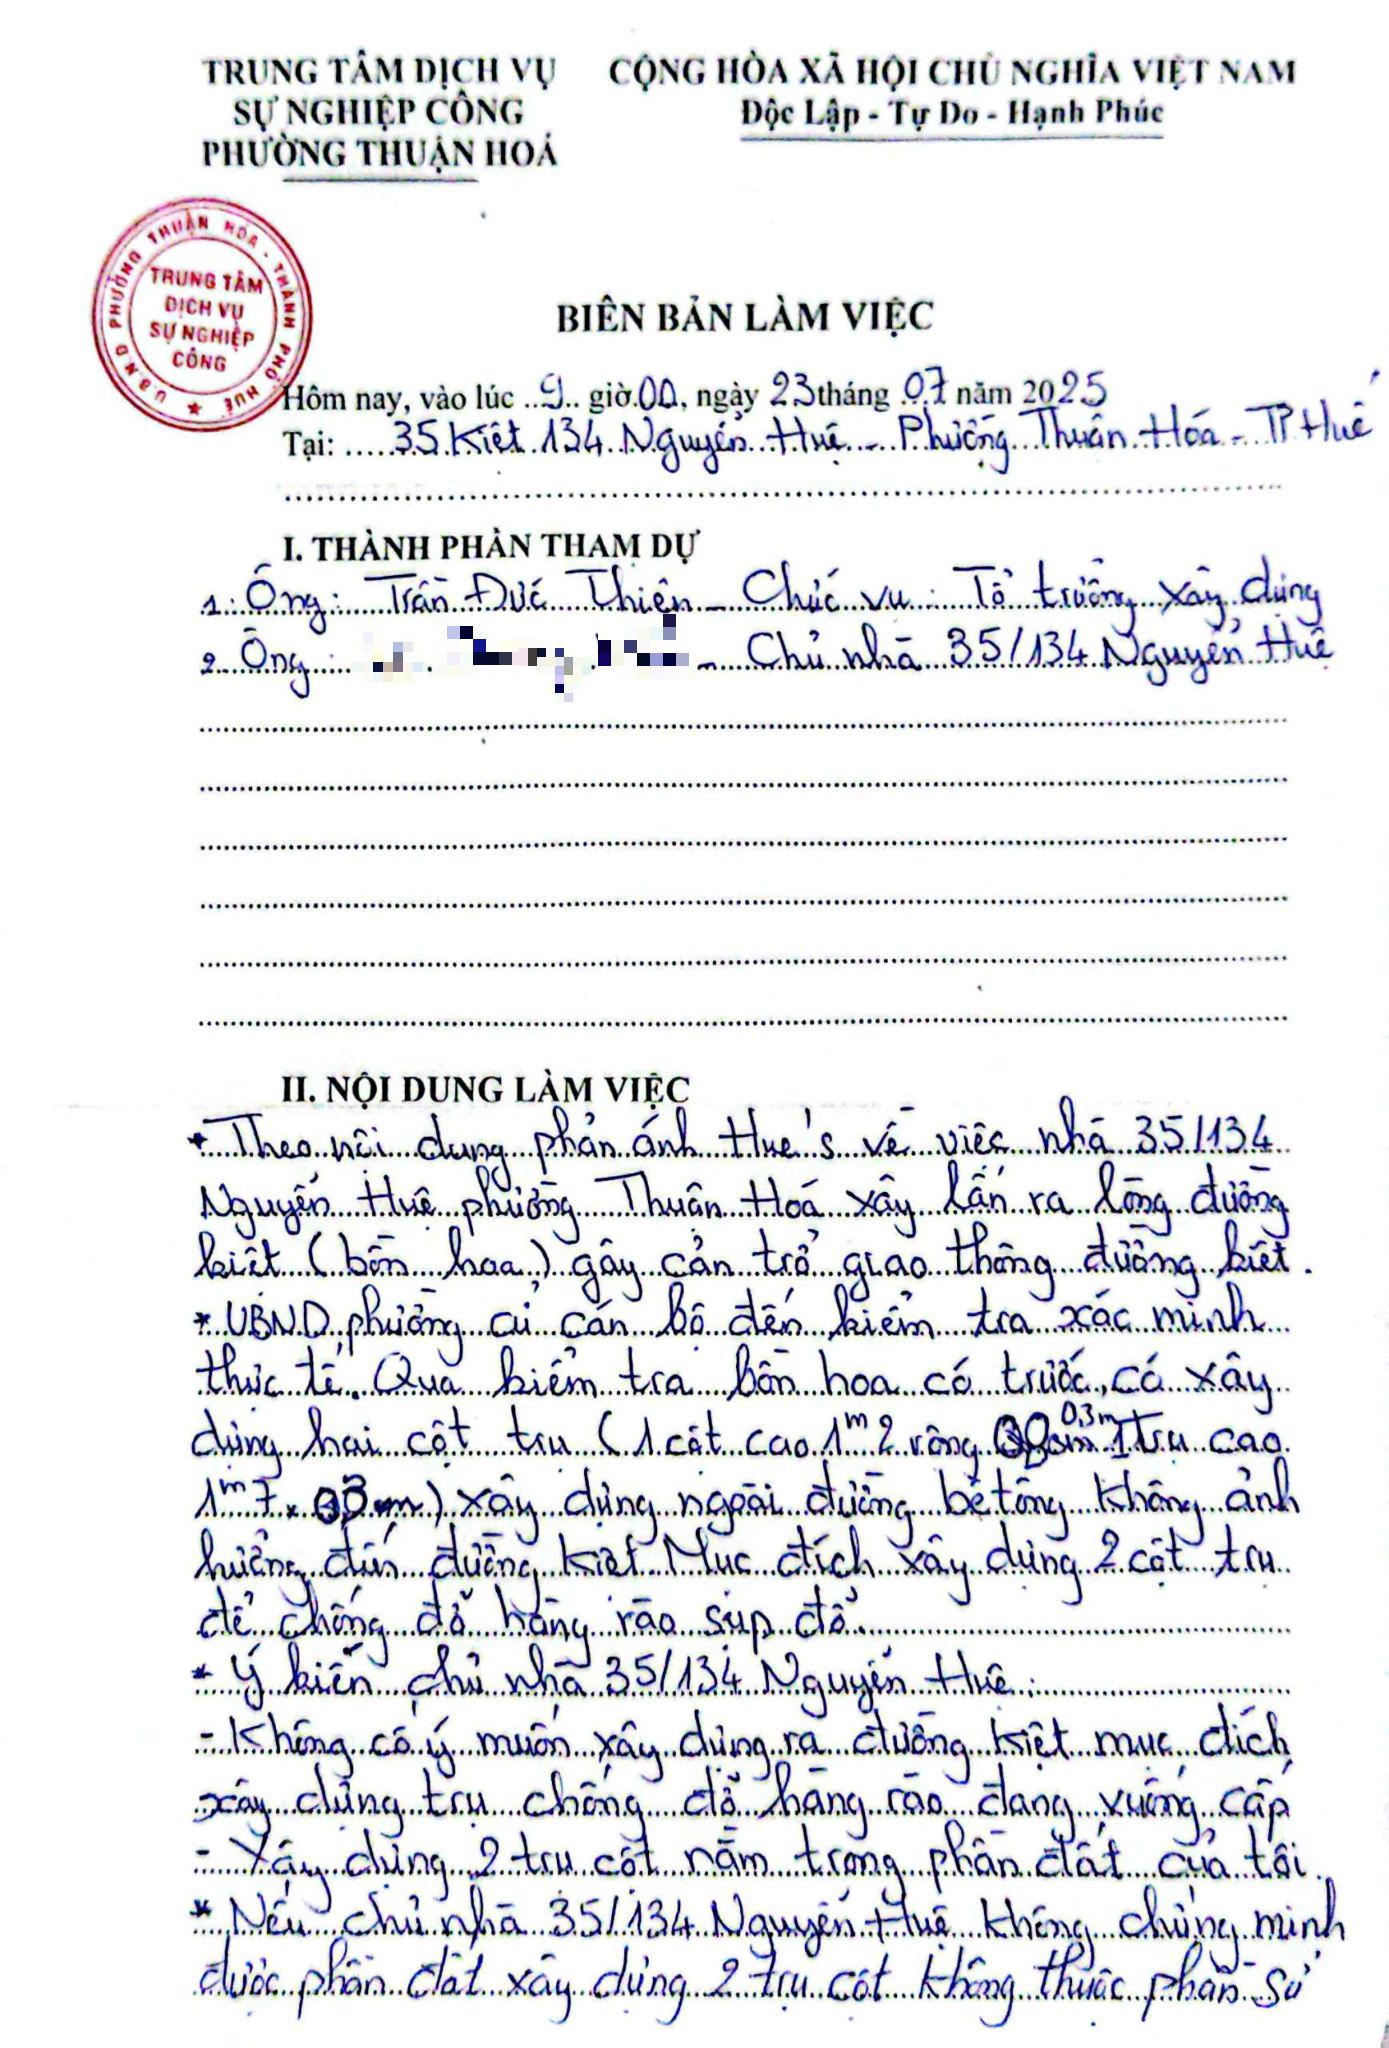 TRUNG TÂM DỊCH VỤ
SỰ NGHIỆP CÔNG
PHƯỜNG THUẬN HOÁ
CỘNG HÒA XÃ HỘI CHỦ NGHĨA VIỆT NAM
Độc Lập - Tự Do - Hạnh Phúc
U.B.N.D PHƯỜNG THUẬN HÓA - THÀNH PHỐ HUẾ
TRUNG TÂM
DỊCH VỤ
SỰ NGHIỆP
CÔNG
BIÊN BẢN LÀM VIỆC
Hôm nay, vào lúc 9 giờ 00, ngày 23 tháng 07 năm 2025
Tại: 35 Kiệt 134 Nguyễn Huệ - Phường Thuận Hóa - TP Huế
I. THÀNH PHẦN THAM DỰ
1. Ông: Trần Đức Thiện - Chức vụ: Tổ trưởng xây dựng
2. Ông: - Chủ nhà 35/134 Nguyễn Huệ
II. NỘI DUNG LÀM VIỆC
* Theo nội dung phản ánh Hue's về việc nhà 35/134
Nguyễn Huệ phường Thuận Hoá xây lấn ra lòng đường
kiệt (bồn hoa) gây cản trở giao thông đường kiệt.
* UBND phường cử cán bộ đến kiểm tra xác minh
thực tế. Qua kiểm tra bồn hoa có trước, có xây
dựng hai cột trụ (1 cột cao 1m2 rộng 0,3m 1 trụ cao
1m7 x) xây dựng ngoài đường bê tông không ảnh
hưởng đến đường kiệt. Mục đích xây dựng 2 cột trụ
để chống đỡ hàng rào sụp đổ.
* Ý kiến chủ nhà 35/134 Nguyễn Huệ:
- Không có ý muốn xây dựng ra đường kiệt mục đích
xây dựng trụ chống đỡ hàng rào đang xuống cấp
- Xây dựng 2 trụ cột nằm trong phần đất của tôi.
* Nếu chủ nhà 35/134 Nguyễn Huệ không chứng minh
được phần đất xây dựng 2 trụ cột không thuộc phần sử